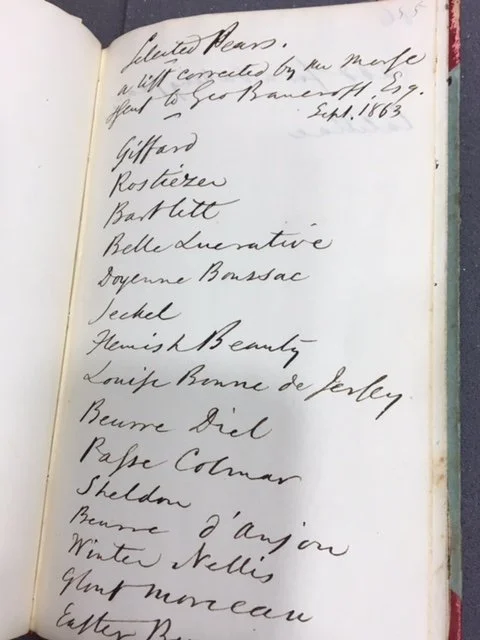 Selected Pears.
a list corrected by Mr Morse
sent to Geo Bancroft, Esq.
Sept. 1863
Giffard
Rostiezer
Bartlett
Belle Lucrative
Doyenne Boussac
Seckel
Flemish Beauty
Louise Bonne de Jersey
Beurre Diel
Passe Colmar
Sheldon
Beurre d'Anjou
Winter Nellis
Glout Morceau
Easter